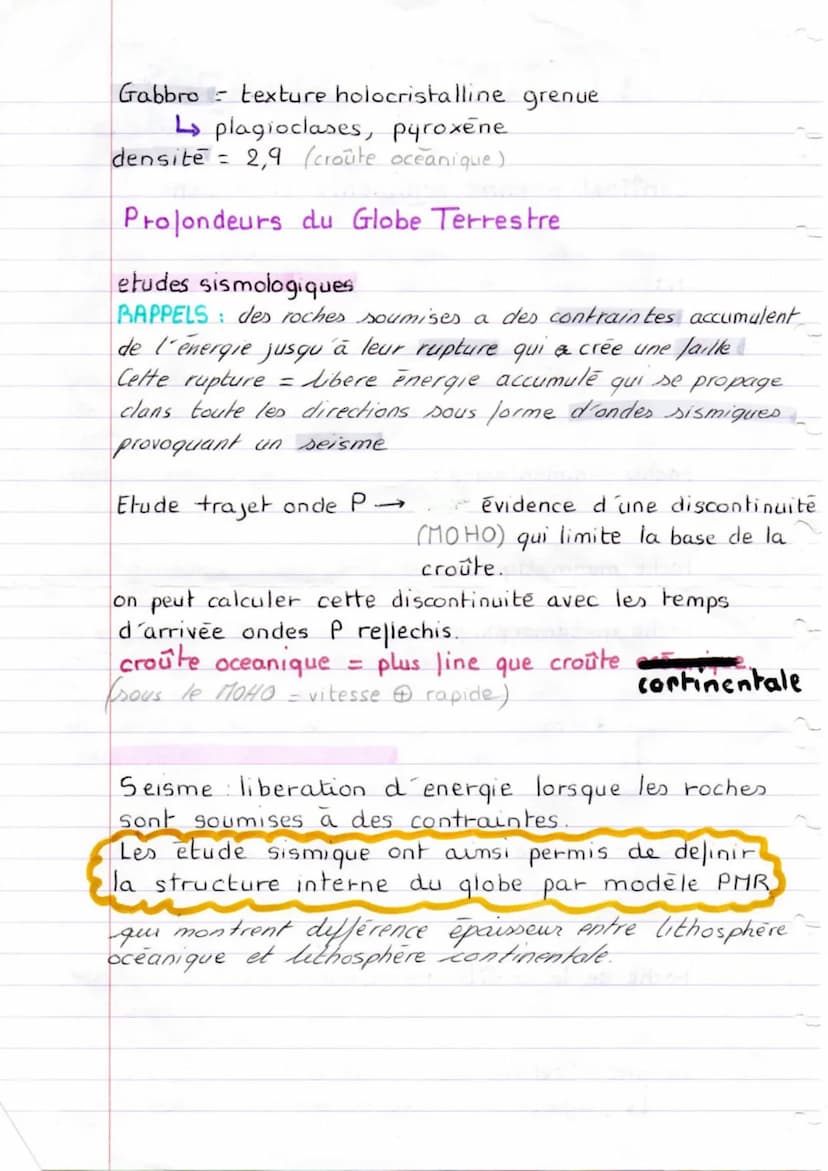 Gabbro = texture holocristalline grenue
↳ plagioclases, pyroxēne
densitē = 2,9 (croûte ocēanique)
Profondeurs du Globe Terrestre
etudes sismologiques
RAPPELS : des roches soumises a des contraintes accumulent
de l'énergie jusqu'ā leur rupture qui crée une faille
Cette rupture = libere ēnergie accumulē qui se propage
dans toute les directions sous forme d'ondes sismiques
provoquant un seisme
Etude trajet onde P → évidence d'une discontinuité
(MOHO) qui limite la base de la
croûte.
on peut calculer cette discontinuité avec les temps
d'arrivée ondes P reflechis.
croûte oceanique = plus fine que croûte
continentale
(sous le MOHO = vitesse ⊕ rapide)
Seisme : liberation d'energie lorsque les roches
sont soumises ā des contraintes.
Les ētude sismique ont ainsi permis de definir
la structure interne du globe par modèle PMR
qui montrent différence épaisseur entre lithosphère
ocēanique et lithosphère continentale.